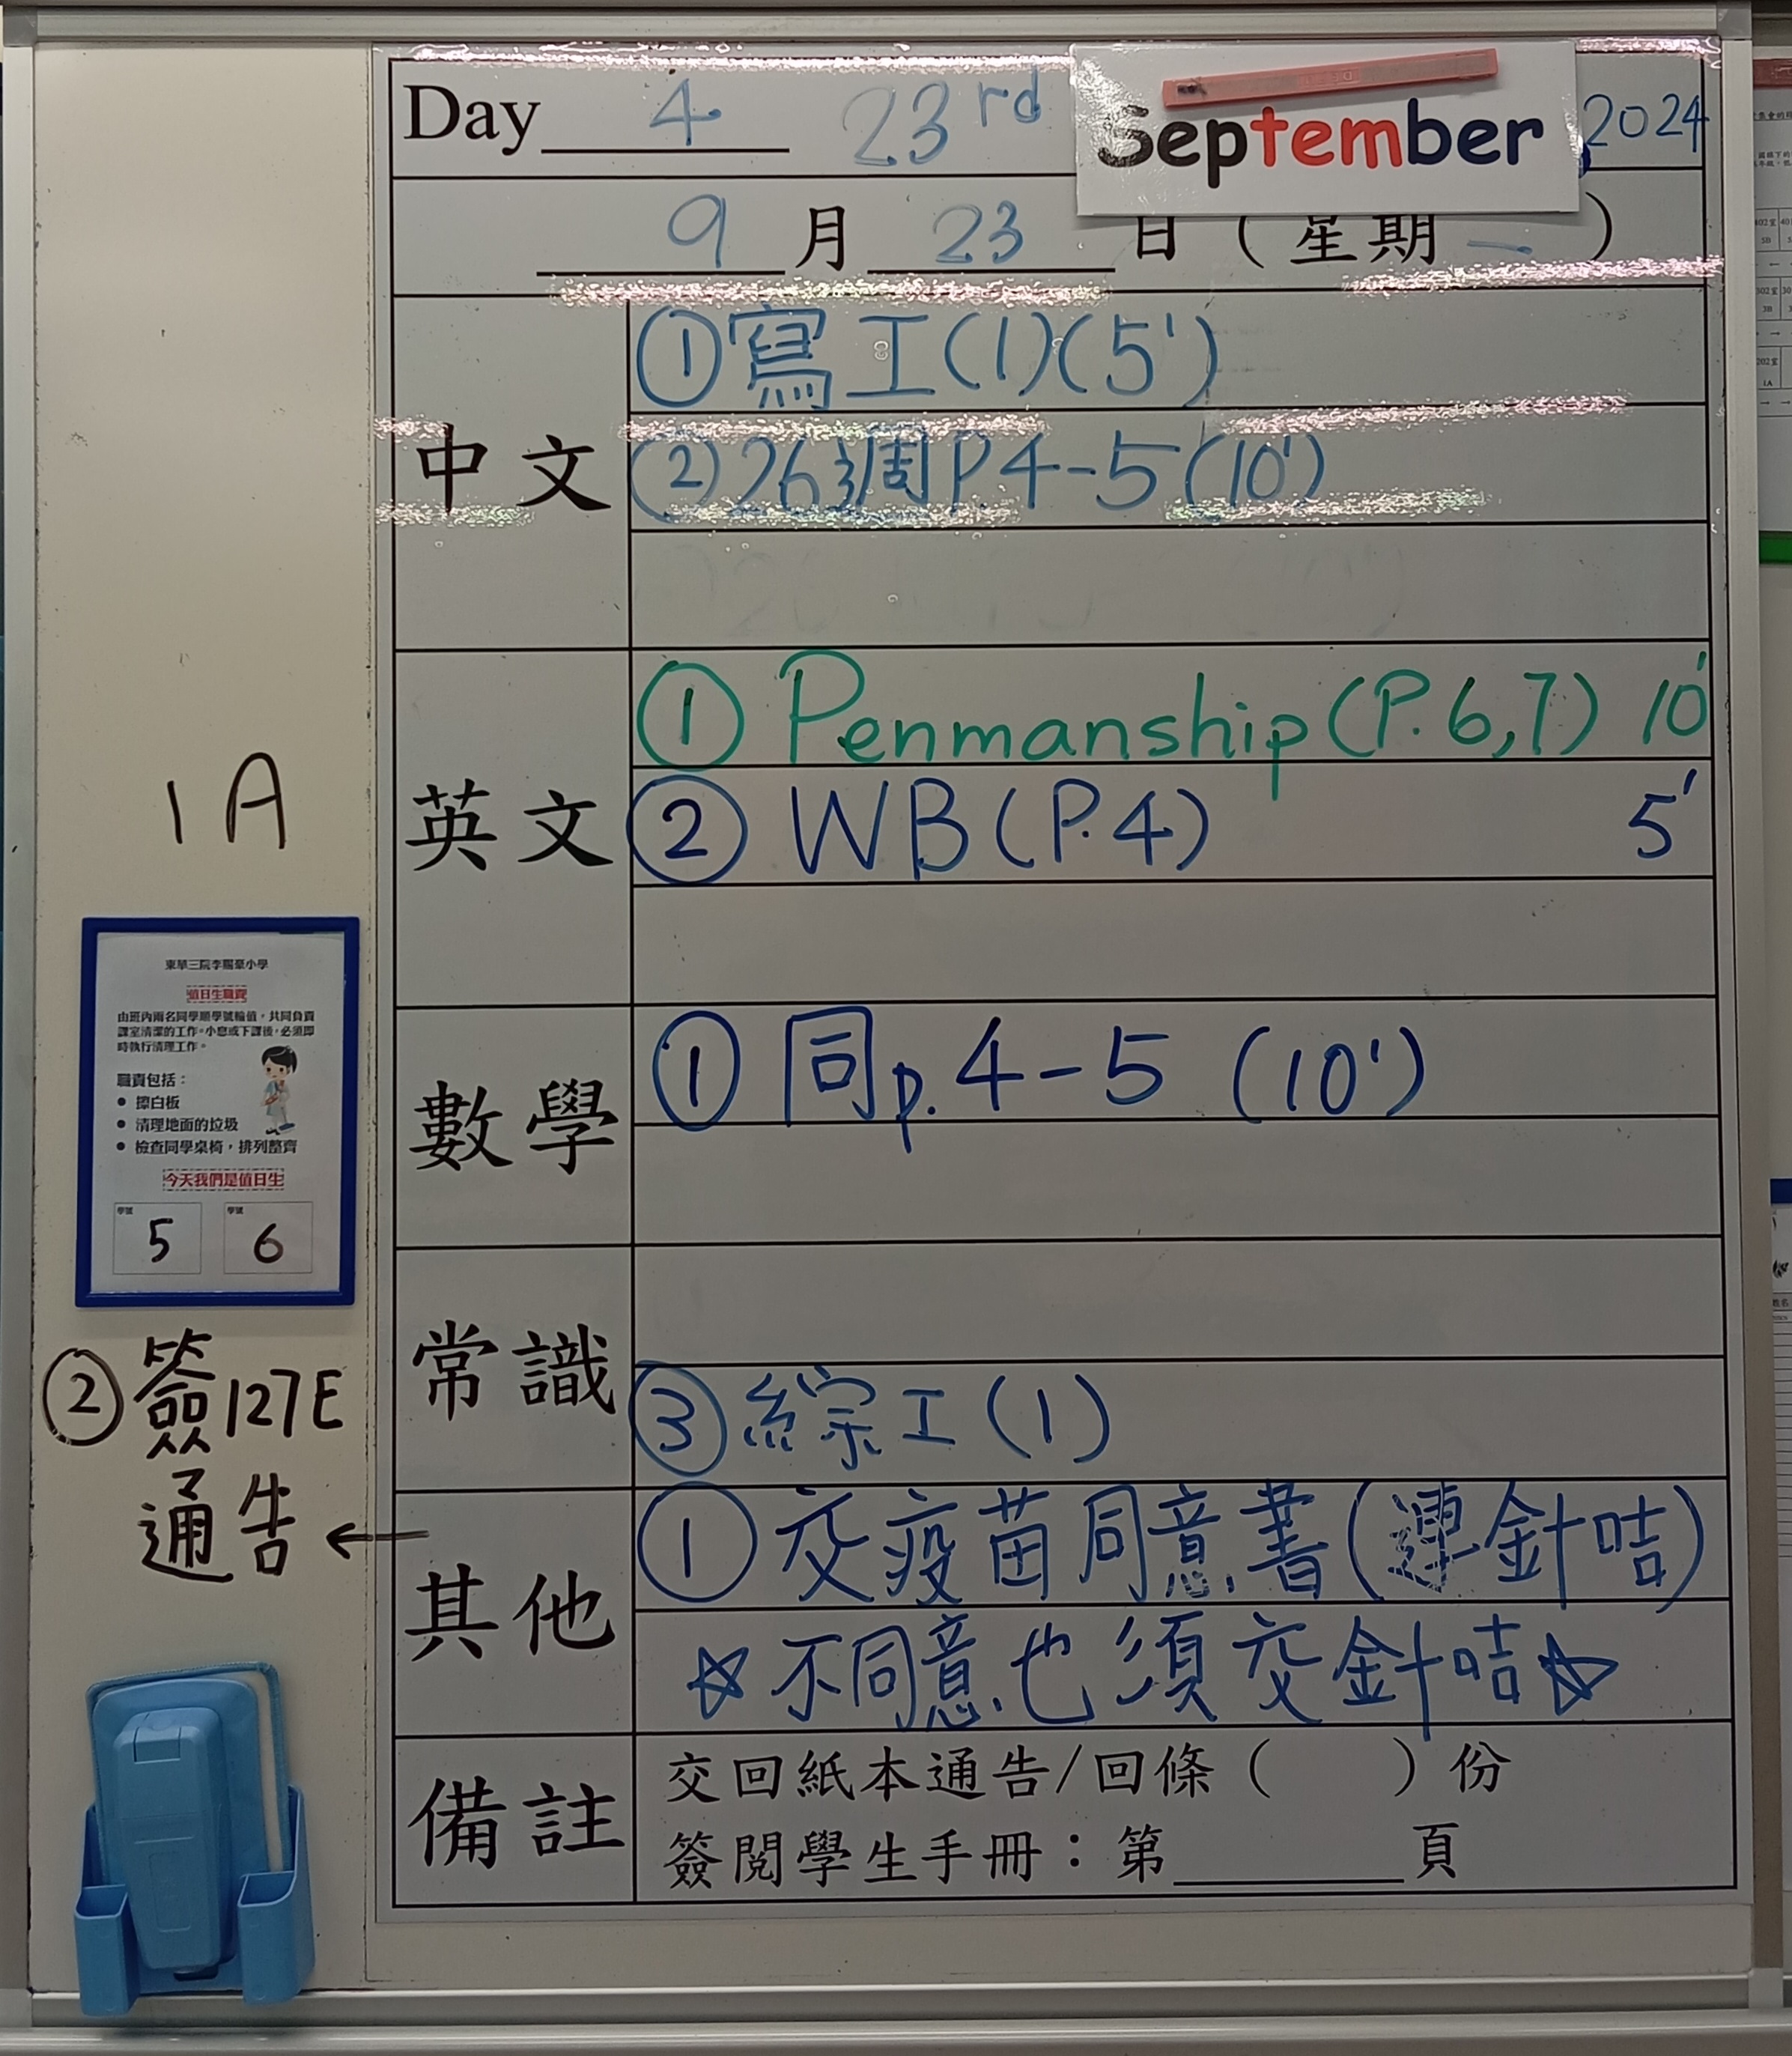 Day 4 23rd September 2024
9月23日(星期一)
中文
①寫工(1)(5')
②26週P.4-5(10')
英文
① Penmanship(P.6,7) 10'
② WB(P.4) 5'
數學
① 同p.4-5 (10')
常識
③綜工(1)
其他
①交疫苗同意書(連針咭)
☆不同意也須交針咭☆
備註
交回紙本通告/回條( )份
簽閱學生手冊：第______頁
1A
東華三院李賜豪小學
值日生職責
由班內兩名同學順學號輪值，共同負責
課室清潔的工作。小息或下課後，必須即
時執行清理工作。
職責包括：
● 擦白板
● 清理地面的垃圾
● 檢查同學桌椅，排列整齊
今天我們是值日生
學號 學號
5 6
②簽127E
通告←